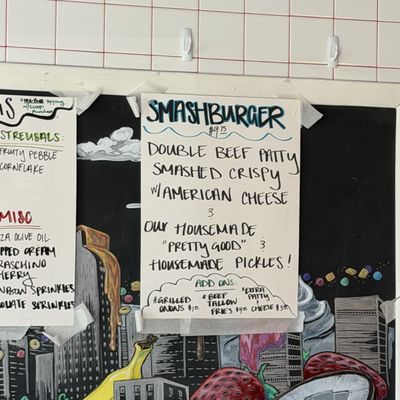 STREUSALS:
FRUITY PEBBLE
CORNFLAKE
MISC
OLIVE OIL
CREAM
MARASCHINO
CHERRY
SPRINKLES
SPRINKLES
SMASHBURGER
DOUBLE BEEF PATTY
SMASHED CRISPY
W/ AMERICAN CHEESE
&
OUR HOUSEMADE
"PRETTY GOOD" &
HOUSEMADE PICKLES!
ADD ONS:
*GRILLED ONIONS
*BEEF TALLOW FRIES
*EXTRA PATTY & CHEESE